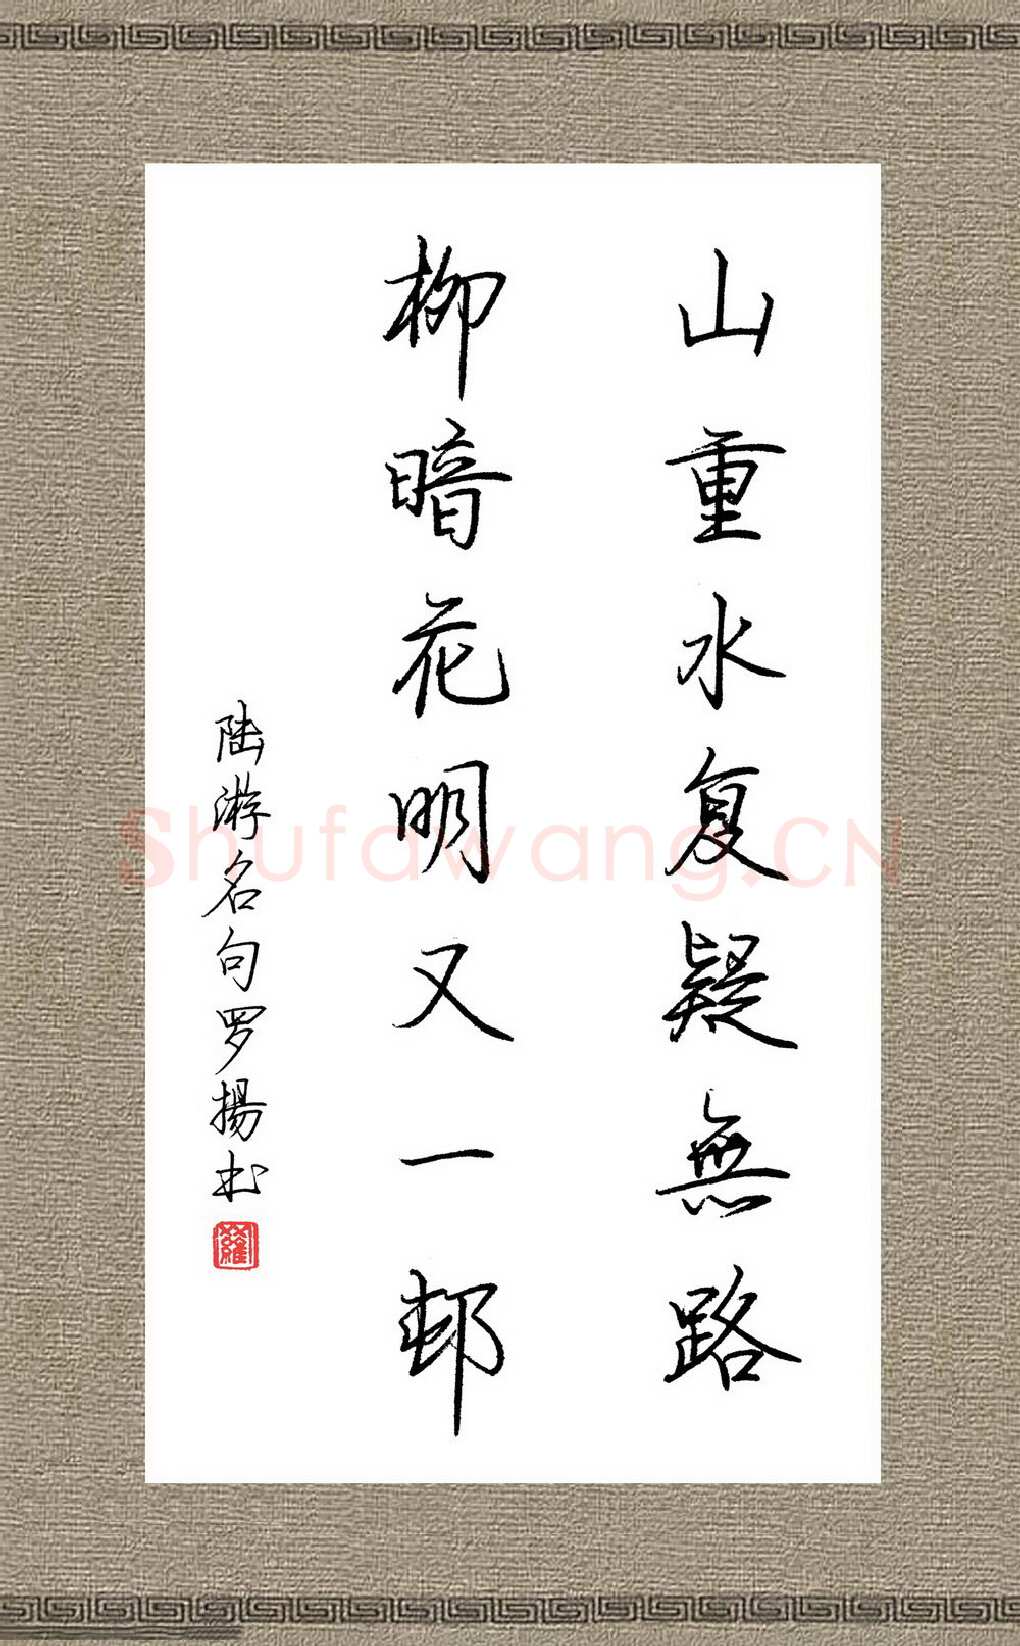 山重水复疑無路
柳暗花明又一邨
陆游名句罗揚书
羅
Shufawang.CN